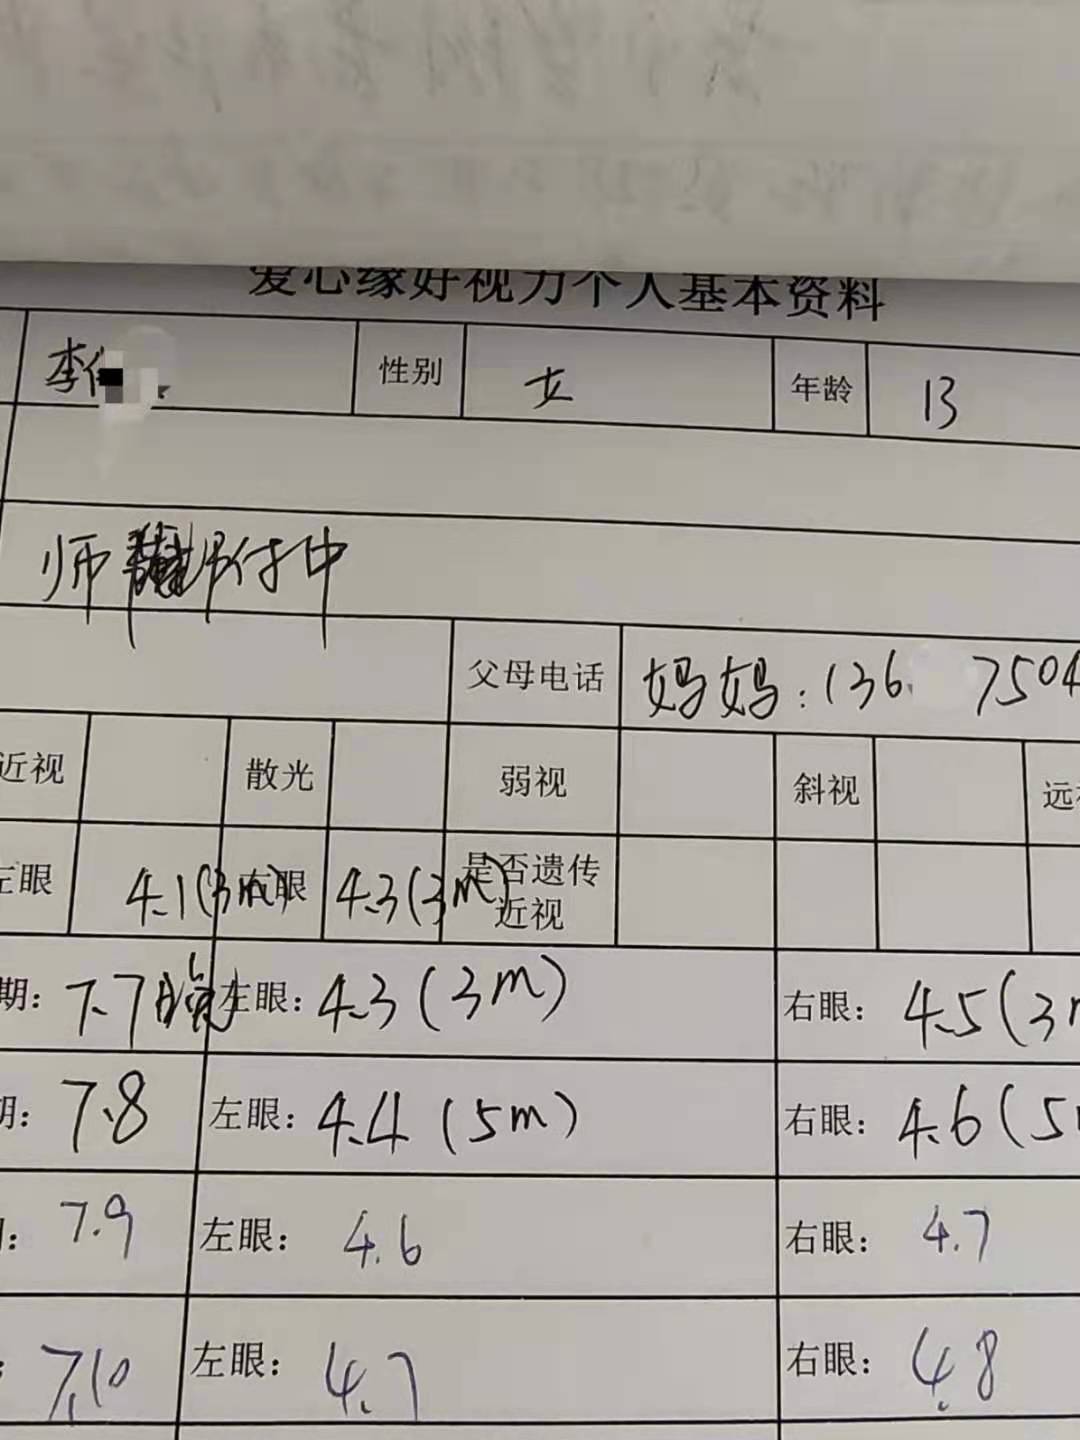 爱心缘好视力个人基本资料
李 性别 女 年龄 13
师 附中
父母电话 妈妈:136 7504
近视 散光 弱视 斜视 远
左眼 4.1(3m) 右眼 4.3(3m) 是否遗传近视
期: 7.7 左眼: 4.3(3m) 右眼: 4.5(3m
期: 7.8 左眼: 4.4(5m) 右眼: 4.6(5
: 7.9 左眼: 4.6 右眼: 4.7
: 7.10 左眼: 4.7 右眼: 4.8